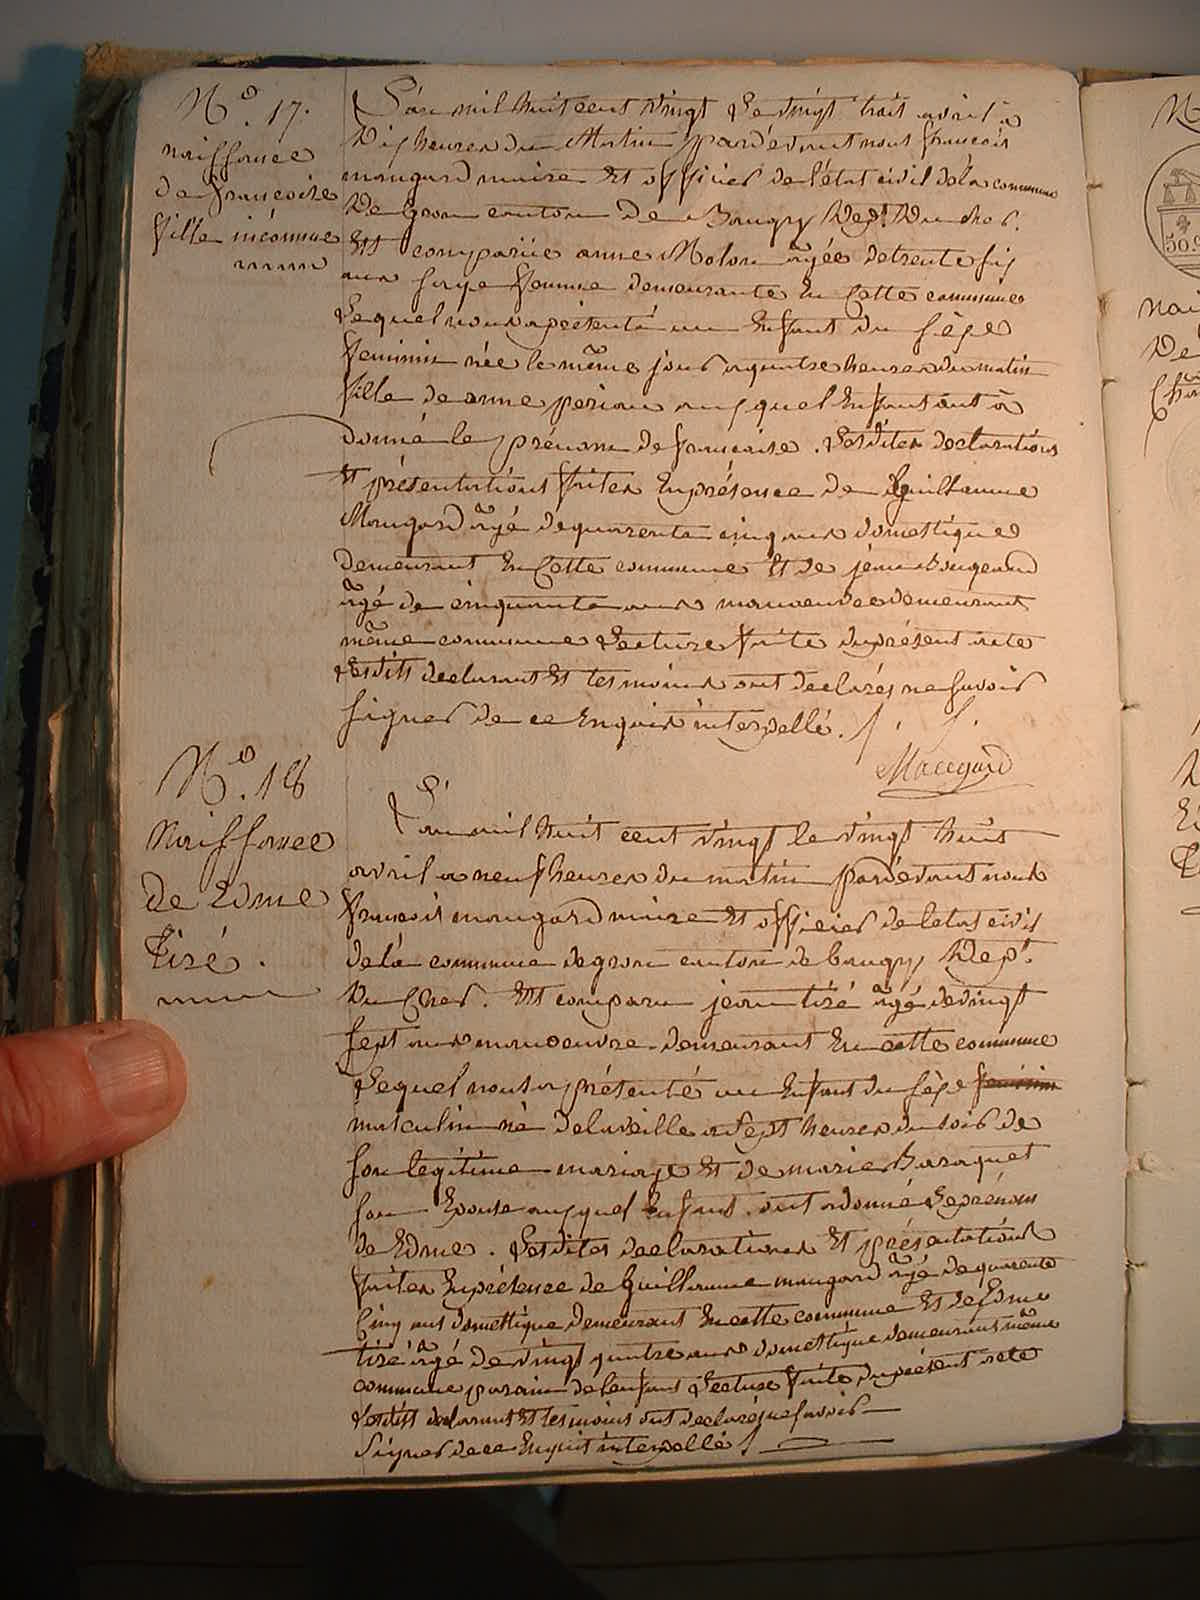 N.º 17.
naissance
de francoise
fille inconnue
L'an mil huit cent vingt le vingt trois avril à
Dix heures du Matin pardevant nous francois
maugard maire Et officier de l'état civil de la commune
De Gron canton De Baugy Dept. Du cher.
Est comparüe anne Molon âgée de trente six
ans sage femme demeurante En Cette commune
Lequel nous a présenté un Enfant du séxe
feminin née le même jour a quatre heures du matin
fille de anne perion auxquel Enfant ont à
donné le prénom de francoise. Lesdites declarations
Et présentations faites En présence de Guillaume
Maugard âgé de quarente cinq ans domestique
Demeurant En Cette commune Et de jean Bougeard
âgé de cinquante ans manoeuvre demeurant
même commune Lecture faite du présent acte
Lesdits declarant Et tesmoins ont declarés ne savoir
signer de ce Enquis interpellé.
Maugard
N.º 18
Naissance
de Edme
Tixé.
L'an mil huit cent vingt le vingt huit
avril a neuf heures du matin pardevant nous
francois maugard maire Et officier de letat civil
de la commune de gron canton de baugy Dept.
Du Cher. Est comparu jean tixé âgé de vingt
sept ans manoeuvre demeurant En cette commune
Lequel nous a présenté un Enfant du séxe feminin
masculin né de la veille a sept heures du soir de
son legitime mariage Et de marie Baraquet
son Epouse auxquel Enfant ont a donné Le prénom
de Edme. Lesdites declarations Et présentations
faites En présence de Guillaume maugard âgé de quarente
Cinq ans domestique demeurant En cette commune Et de Edme
tixé âgé de vingt quatre ans domestique demeurant même
commune parain de lenfant Lecture faite du présent acte
Lesdits declarant Et tesmoins ont declaré ne savoir
Signer de ce Enquit interpellé